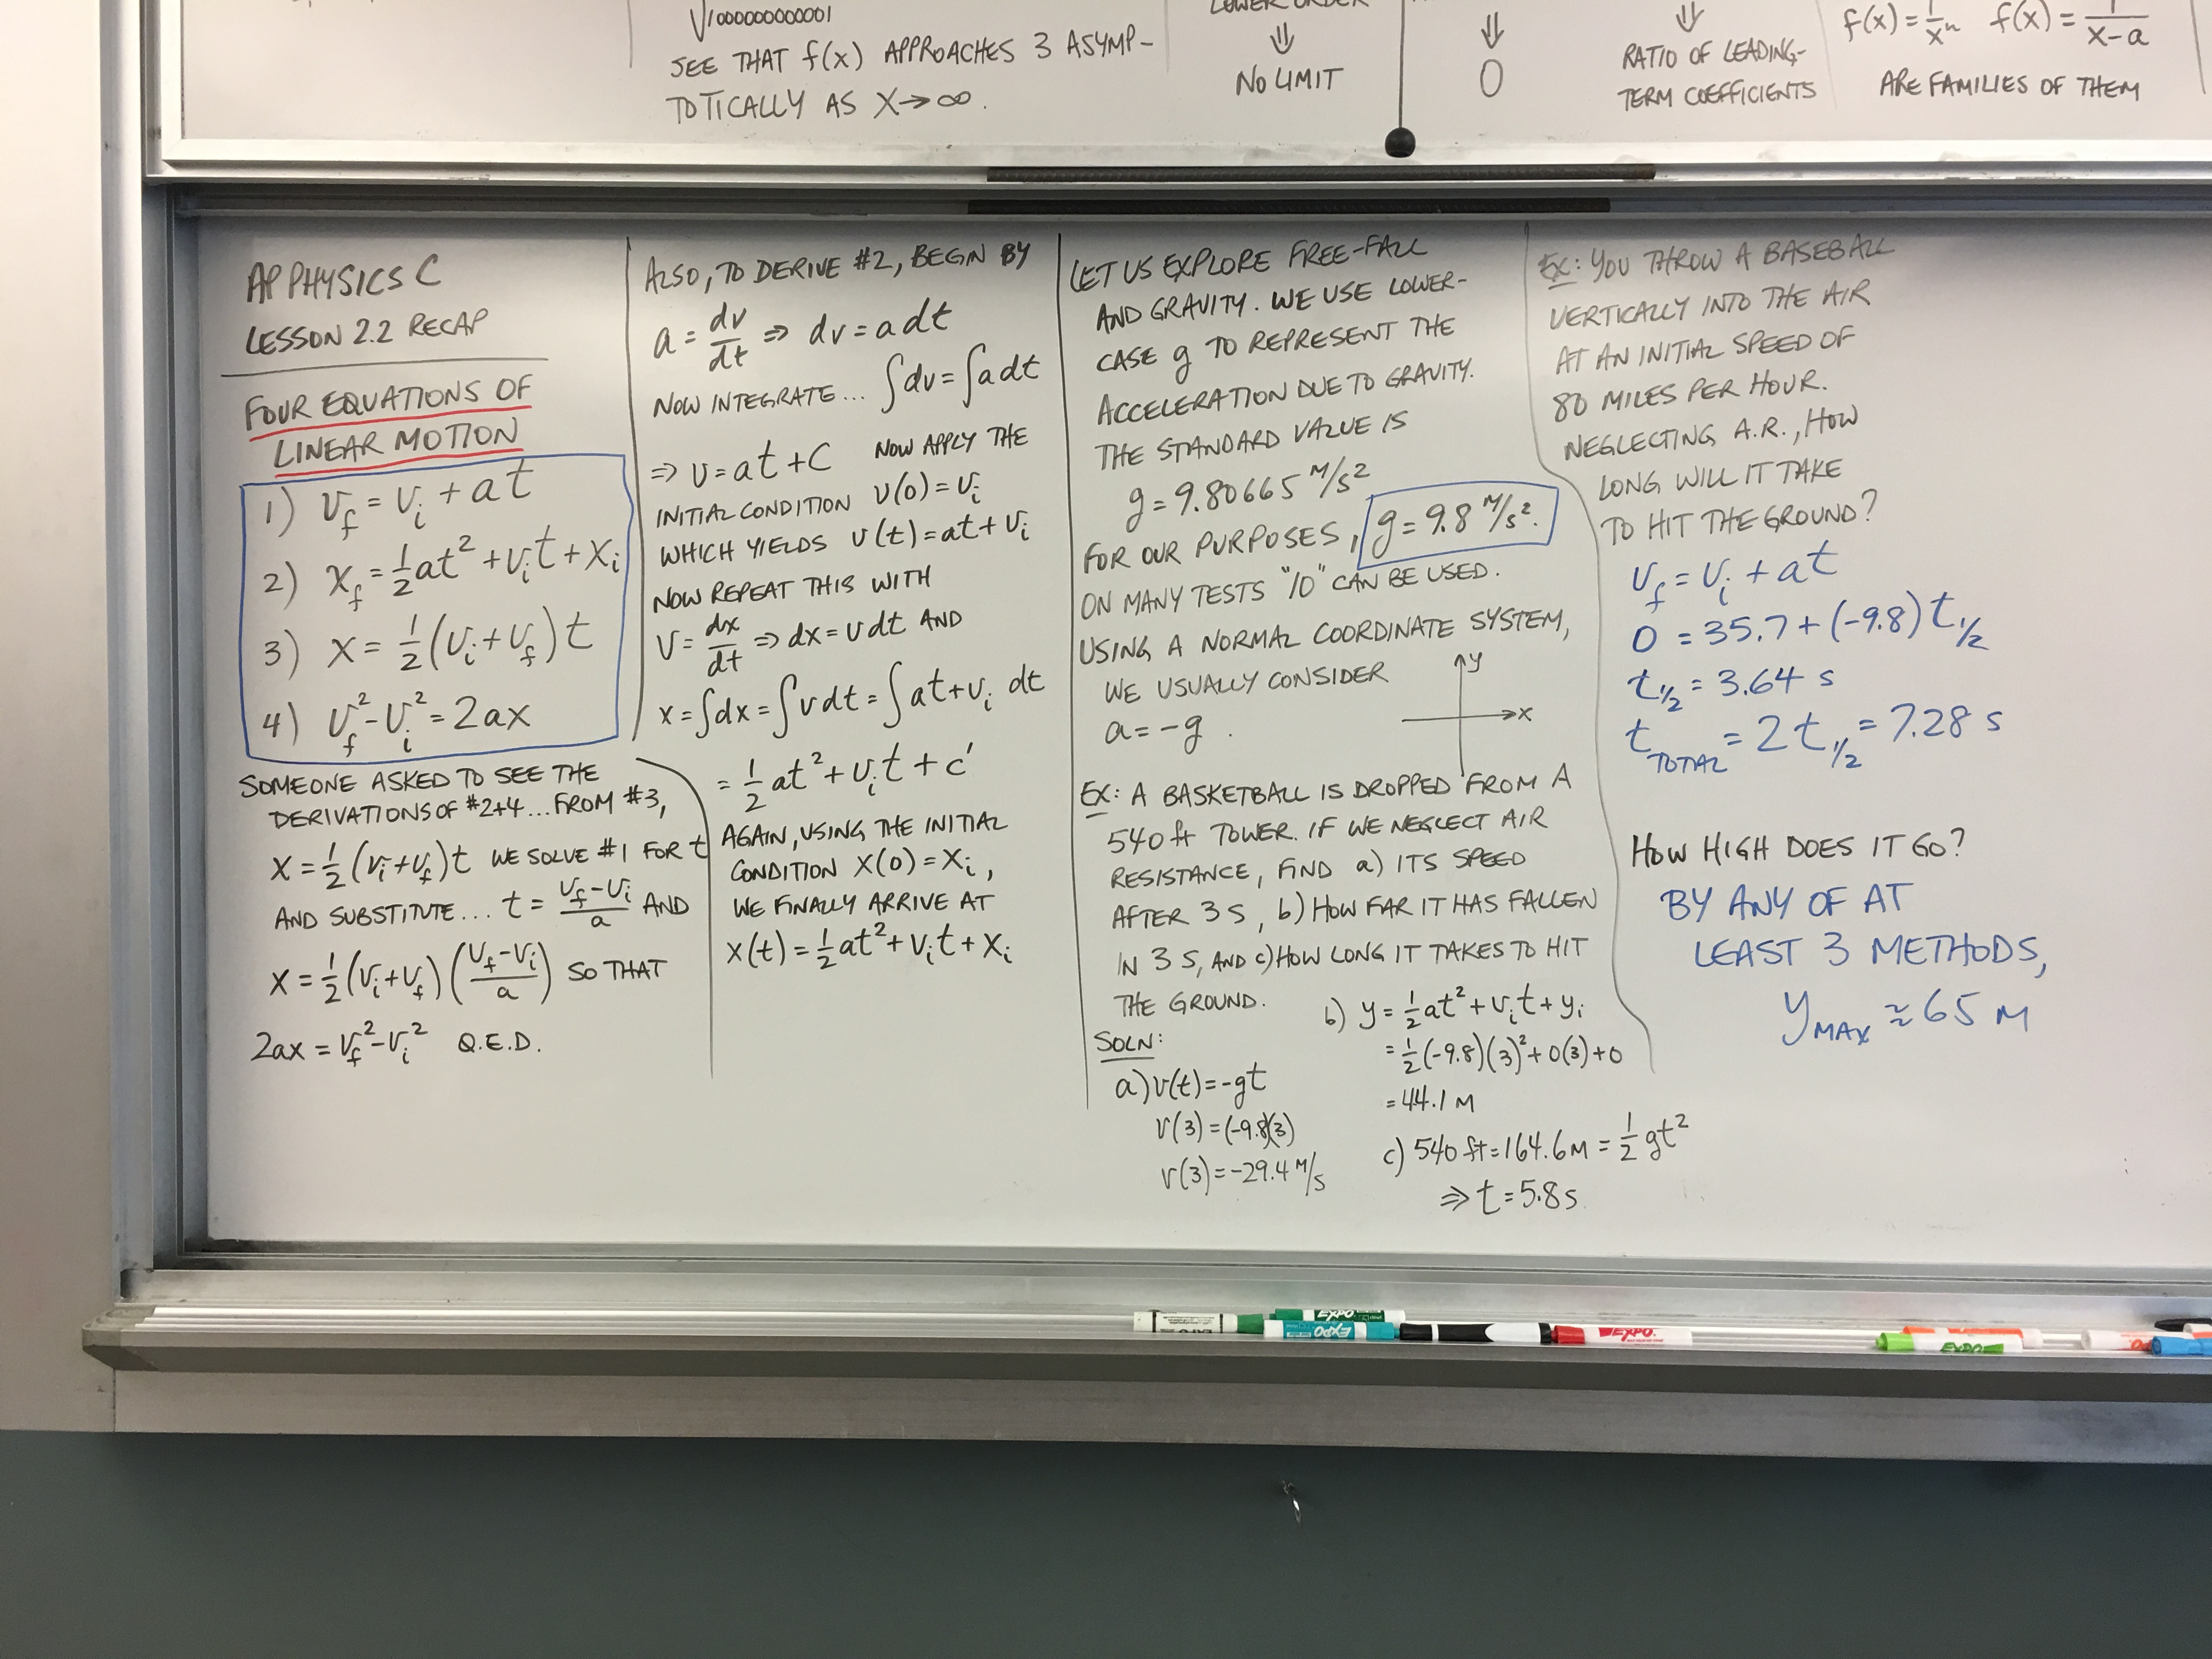 √1000000000001
SEE THAT f(x) APPROACHES 3 ASYMP-
TOTICALLY AS X→∞.
LOWER ORDER
⇓
NO LIMIT
⇓
0
⇓
RATIO OF LEADING-
TERM COEFFICIENTS
f(x)=1/xⁿ f(x)=1/(x-a)
ARE FAMILIES OF THEM
AP PHYSICS C
LESSON 2.2 RECAP
FOUR EQUATIONS OF
LINEAR MOTION
1) v_f = v_i + at
2) x_f = ½at² + v_i t + x_i
3) x = ½(v_i + v_f)t
4) v_f² - v_i² = 2ax
SOMEONE ASKED TO SEE THE
DERIVATIONS OF #2+4... FROM #3,
x = ½(v_i + v_f)t WE SOLVE #1 FOR t
AND SUBSTITUTE... t = (v_f - v_i)/a AND
x = ½(v_i + v_f)((v_f - v_i)/a) SO THAT
2ax = v_f² - v_i² Q.E.D.
ALSO, TO DERIVE #2, BEGIN BY
a = dv/dt ⇒ dv = a dt
NOW INTEGRATE... ∫dv = ∫a dt
⇒ v = at + C NOW APPLY THE
INITIAL CONDITION v(0) = v_i
WHICH YIELDS v(t) = at + v_i
NOW REPEAT THIS WITH
v = dx/dt ⇒ dx = v dt AND
x = ∫dx = ∫v dt = ∫at + v_i dt
= ½at² + v_i t + c'
AGAIN, USING THE INITIAL
CONDITION x(0) = x_i,
WE FINALLY ARRIVE AT
x(t) = ½at² + v_i t + x_i
LET US EXPLORE FREE-FALL
AND GRAVITY. WE USE LOWER-
CASE g TO REPRESENT THE
ACCELERATION DUE TO GRAVITY.
THE STANDARD VALUE IS
g = 9.80665 M/s²
FOR OUR PURPOSES, g = 9.8 M/s².
ON MANY TESTS "10" CAN BE USED.
USING A NORMAL COORDINATE SYSTEM,
WE USUALLY CONSIDER
a = -g.
y
x
EX: A BASKETBALL IS DROPPED FROM A
540 ft TOWER. IF WE NEGLECT AIR
RESISTANCE, FIND a) ITS SPEED
AFTER 3 S, b) HOW FAR IT HAS FALLEN
IN 3 S, AND c) HOW LONG IT TAKES TO HIT
THE GROUND.
SOLN:
a) v(t) = -gt
v(3) = (-9.8)(3)
v(3) = -29.4 M/s
b) y = ½at² + v_i t + y_i
= ½(-9.8)(3)² + 0(3) + 0
= 44.1 M
c) 540 ft = 164.6 M = ½gt²
⇒ t = 5.8 s
EX: YOU THROW A BASEBALL
VERTICALLY INTO THE AIR
AT AN INITIAL SPEED OF
80 MILES PER HOUR.
NEGLECTING A.R., HOW
LONG WILL IT TAKE
TO HIT THE GROUND?
v_f = v_i + at
0 = 35.7 + (-9.8)t_1/2
t_1/2 = 3.64 s
t_TOTAL = 2t_1/2 = 7.28 s
HOW HIGH DOES IT GO?
BY ANY OF AT
LEAST 3 METHODS,
y_MAX ≈ 65 M
EXPO
EXPO
EXPO
EXPO
EXPO